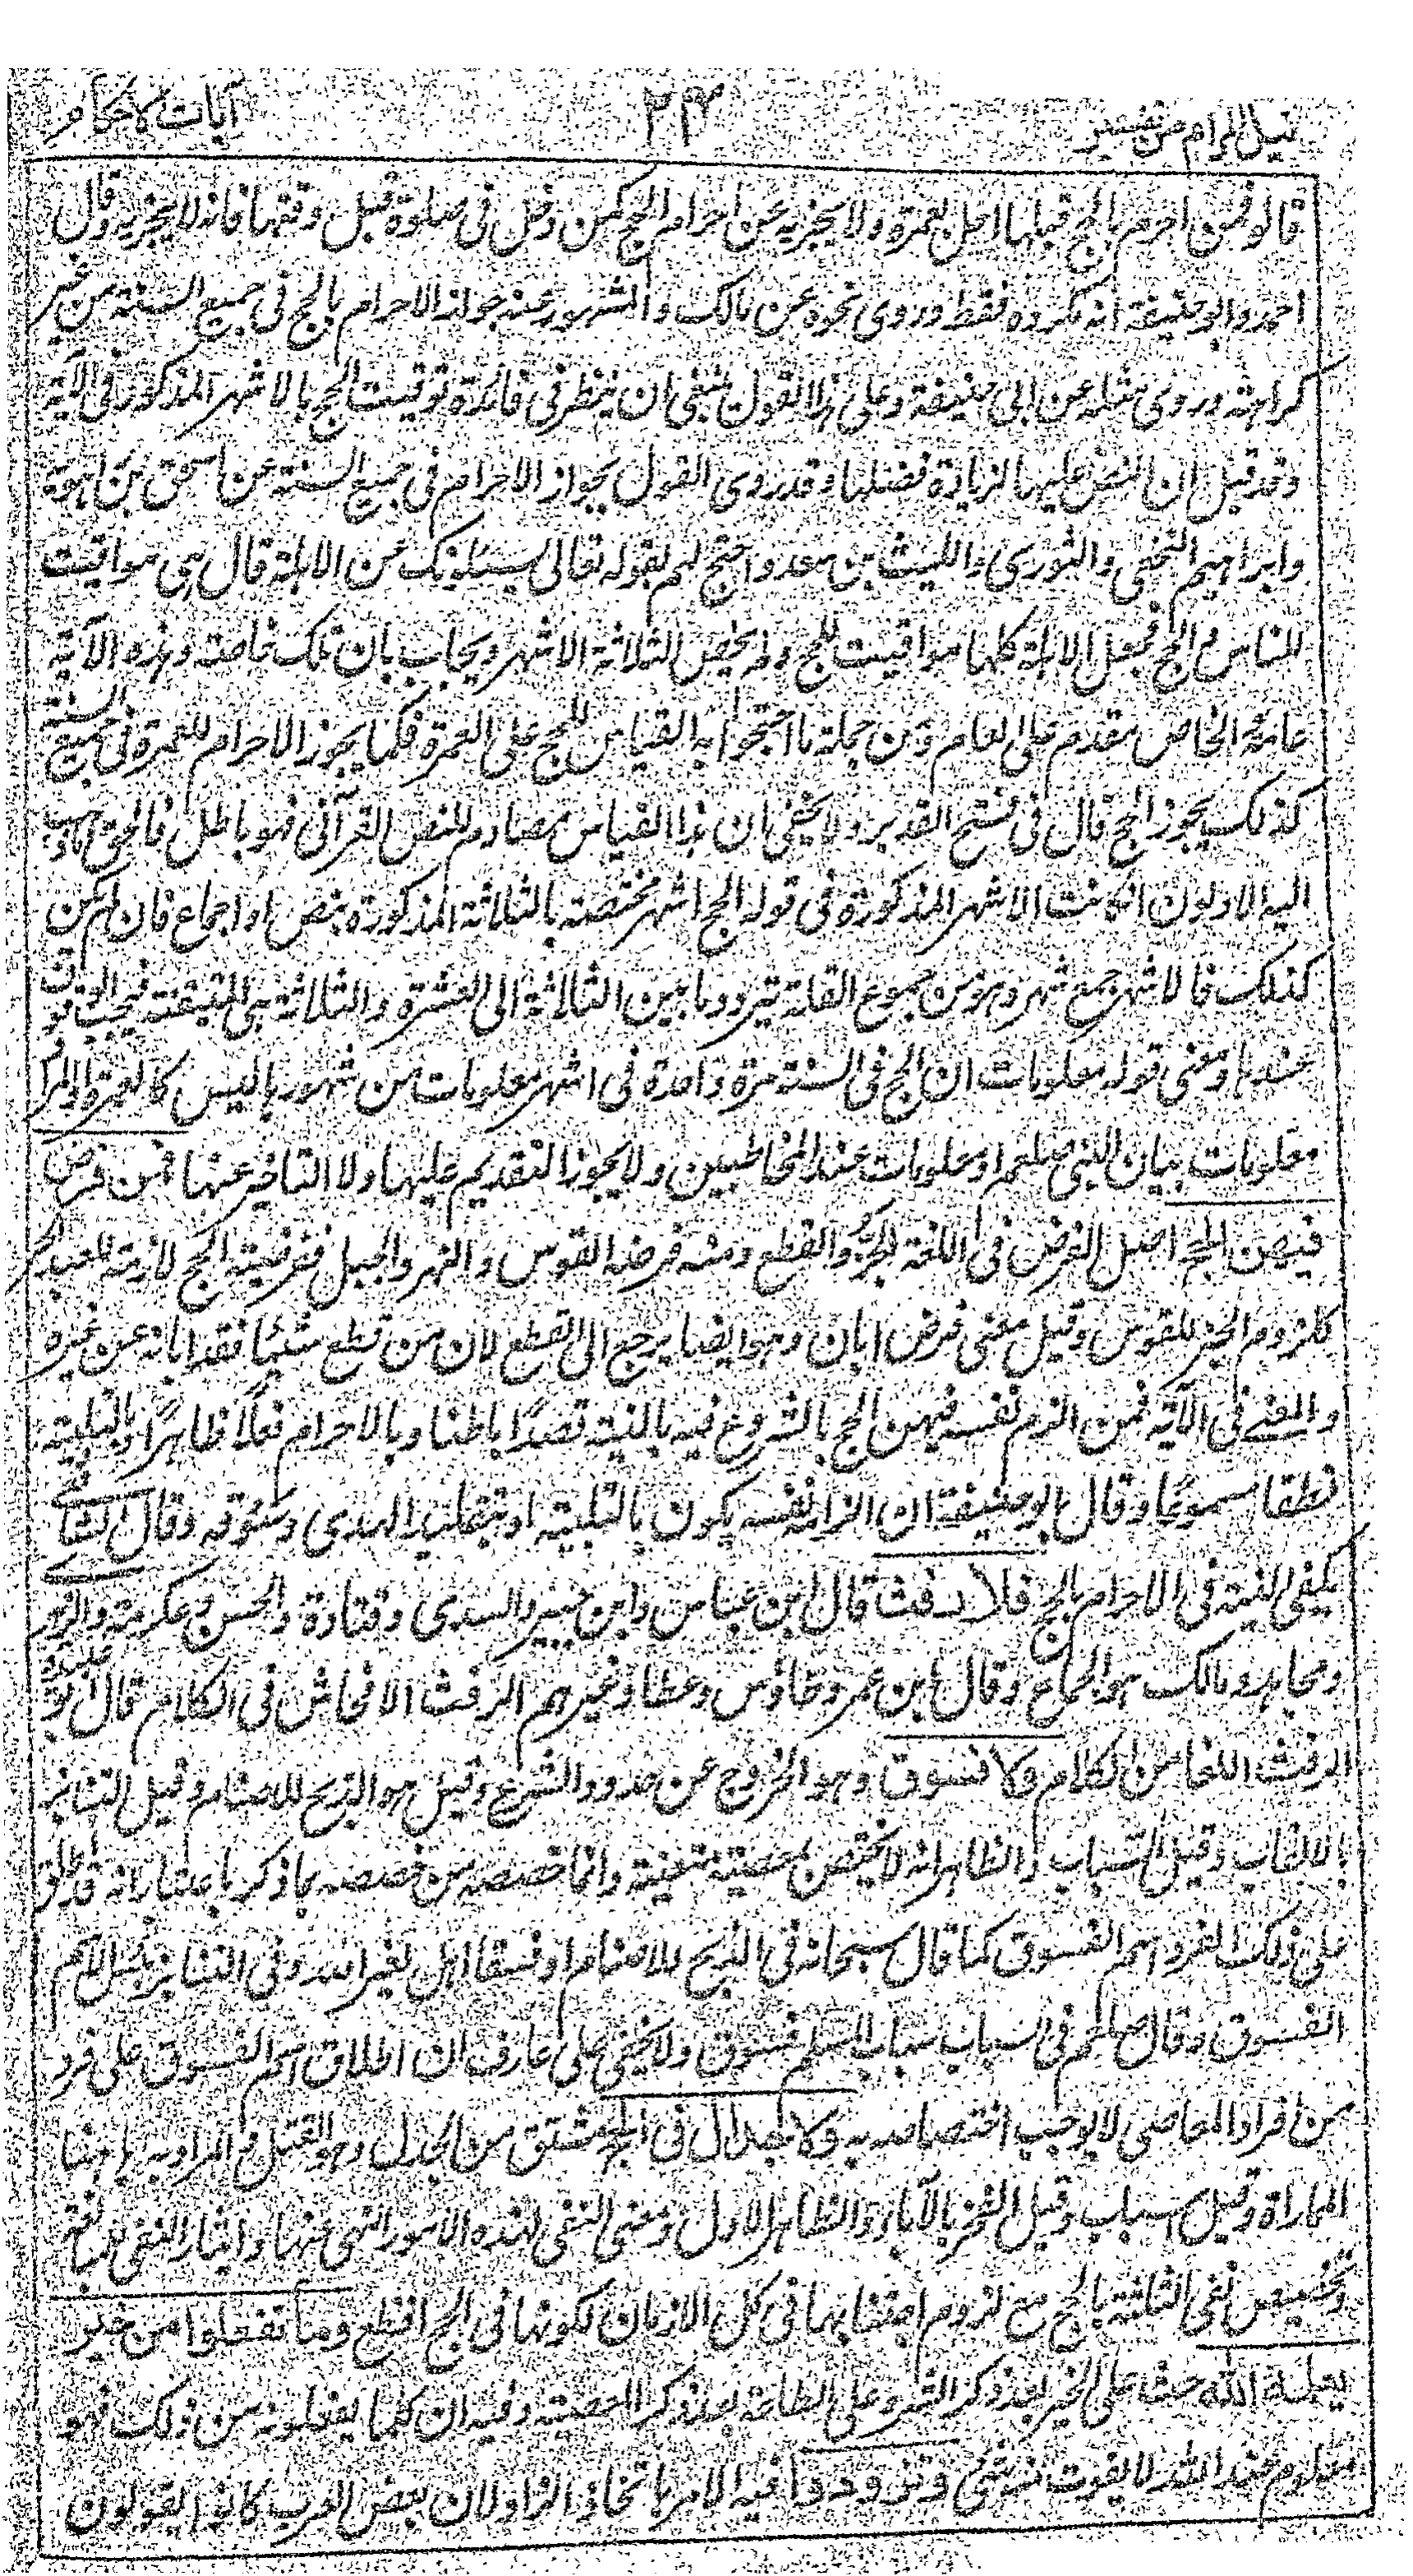 نيل المرام من تفسير ٢٤ آيات الاحكام
قالوا فمن احرم بالحج قبلها احل بعمرة ولا يجزيه عن احرام الحج كمن دخل فى صلوة قبل وقتها فانه لا يجزيه وقال
احمد وابو حنيفة انه مكروه فقط وروى نحوه عن مالك والمشهور عنه جواز الاحرام بالحج فى جميع السنة من غير
كراهته وروى مثله عن ابى حنيفة وعلى هذا القول ينبغى ان ينظر فى فائدة توقيت الحج بالاشهر المذكور فى الآية
وقد قيل ان النص عليها لزيادة فضلها وقد روى القول بجواز الاحرام فى جميع السنة عن اسحق بن راهويه
وابراهيم النخعى والثورى والليث بن سعد واحتج لهم بقوله تعالى يسئلونك عن الاهلة قال هى مواقيت
للناس والحج فجعل الاهلة كلها مواقيت للحج ولم يخص الثلاثة الاشهر ويجاب بان تلك خاصة وهذه الآية
عامة والخاص مقدم على العام ومن جملة ما احتجوا به القياس للحج على العمرة فكما يجوز الاحرام للعمرة فى جميع السنة
كذلك يجوز الحج قال فى فتح القدير ولا يخفى ان هذا القياس مصادم للنص القرآنى فهو باطل فالحق ما ذهب
اليه الاولون ان كانت الاشهر المذكورة فى قوله الحج اشهر مختصة بالثلاثة المذكورة بنص او اجماع فان لم يكن
كذلك فالاشهر جمع شهر وهو من جموع القلة يتردد ما بين الثلاثة الى العشرة والثلاثة هى المتيقنة فيجب الوقوف
عندها ومعنى قوله معلومات ان الحج فى السنة مرة واحدة فى اشهر معلومات من شهورها ليس كالعمرة او المراد
معلومات ببيان النبى صلعم او معلومات عند المخاطبين ولا يجوز التقديم عليها ولا التاخير عنها فمن فرض
فيهن الحج اصل الفرض فى اللغة الحز والقطع ومنه فرضة القوس والنهر والجبل ففرضية الحج لازمة للعبد الحر
كلزوم الحز للقوس وقيل معنى فرض ابان وهو ايضا يرجع الى القطع لان من قطع شيئا فقد ابانه عن غيره
والمعنے فى الآية فمن الزم نفسه فيهن الحج بالشروع فيه بالنية قصدًا باطنا وبالاحرام فعلًا ظاهرًا وبالتلبية
نطقا مسموعًا وقال ابو حنيفة ان الزامه نفسه يكون بالتلبية او بتقليد الهدى وسوقه وقال الشافعے
يكفى النية فى الاحرام بالحج فلا رفث قال ابن عباس وابن جبير والسدى وقتادة والحسن وعكرمة والزهرى
ومجاهد ومالك هو الجماع وقال ابن عمر وطاؤس وعطا وغيرهم الرفث الافحاش فى الكلام قال ابو عبيدة
الرفث اللغا من الكلام ولا فسوق وهو الخروج عن حدود الشرع وقيل هو الذبح للاصنام وقيل التنابز
بالالقاب وقيل السباب والظاهر انه لا يختص بمعصية متعينة وانما خصصه من خصصه بما ذكر باعتبار انه قد اطلق
على ذلك الفرد اسم الفسوق كما قال سبحانه فى الذبح للاصنام او فسقا اهل لغير الله وفى التنابز بئس الاسم
الفسوق وقال صلعم فى السباب سباب المسلم فسوق ولا يخفى على عارف ان اطلاق اسم الفسوق على فرد
من افراد المعاصى لا يوجب اختصاصه به ولا جدال فى الحج مشتق من الجدل وهو الفتل والمراد به ههنا
المماراة وقيل السباب وقيل الفخر بالآباء والظاهر الاول ومعنى النفى لهذه الامور النهى عنها وايثار النفى للمبالغة
وتخصيص نفى الثلثة بالحج مع لزوم اجتنابها فى كل الازمان لكونها فى الحج افظع وما تفعلوا من خير
يعلمه الله حث على الخير بعد ذكر الشر وعلى الطاعة بعد ذكر المعصية وفيه ان كلما يفعلونه من ذلك فهو
معلوم عند الله لا يفوت منه شئ وتزودوا فيه الامر باتخاذ الزاد لان بعض العرب كانوا يقولون